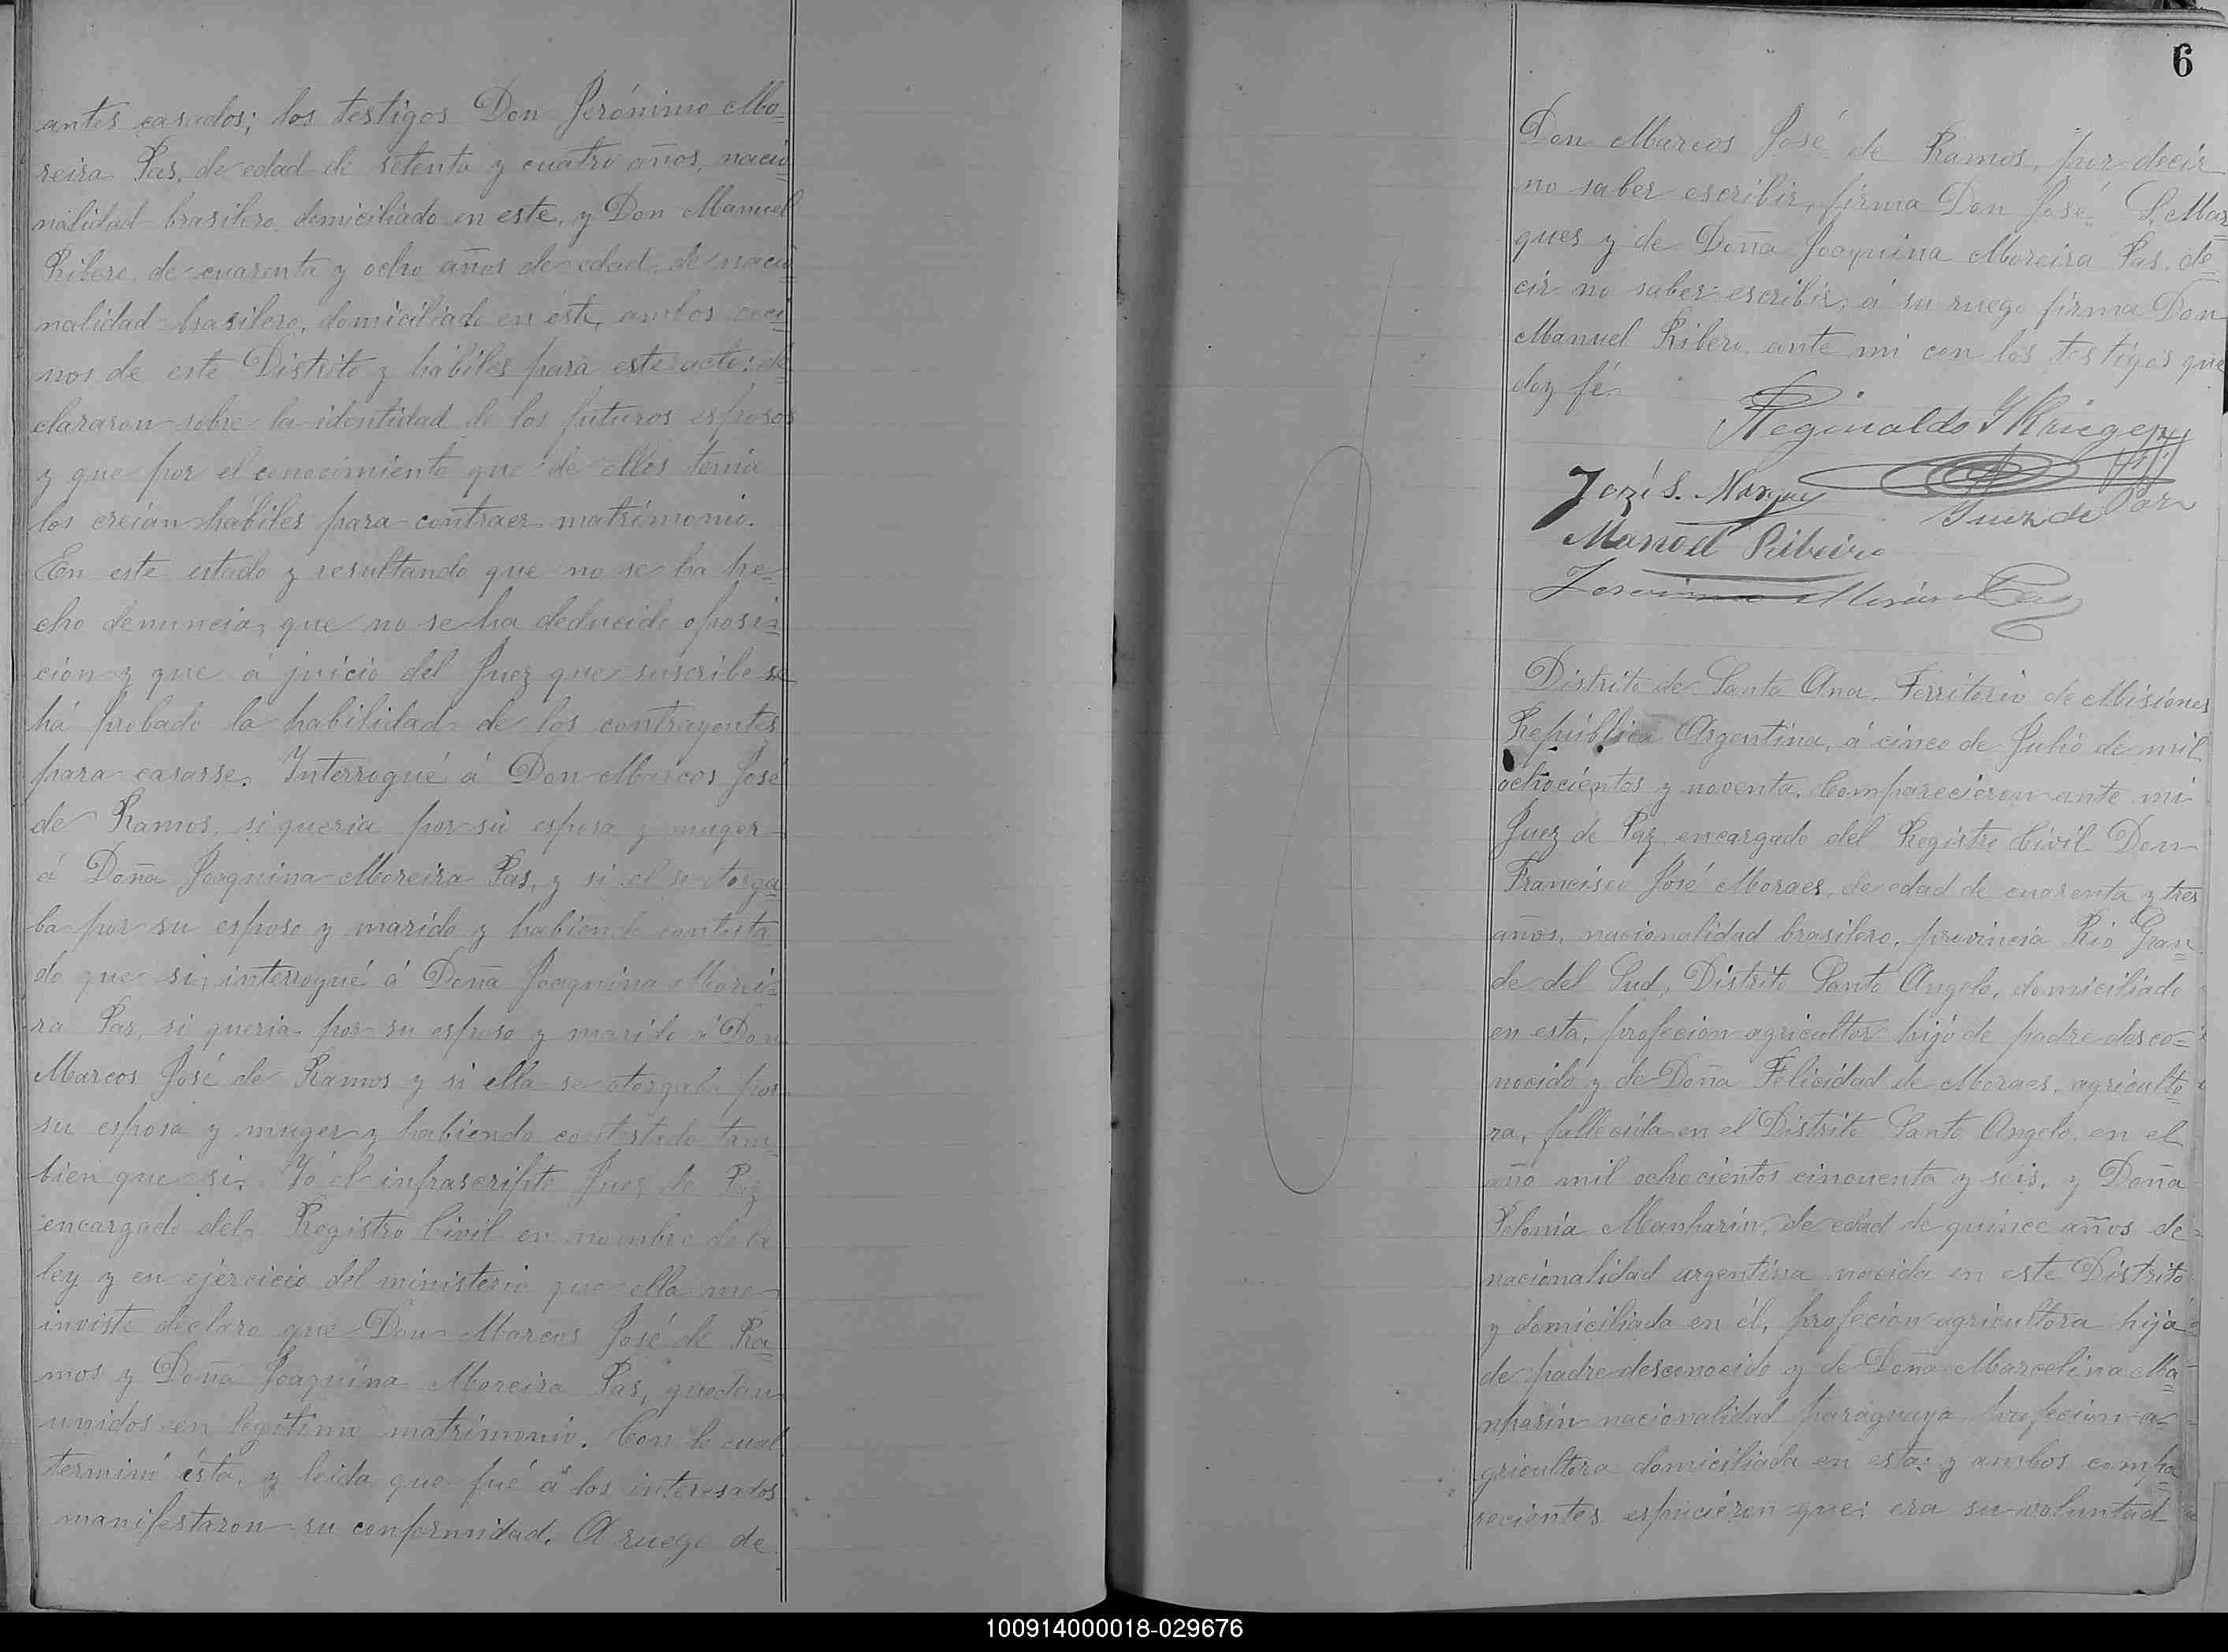 antes casados; los testigos Don Jerónimo Mo=
reira Pas, de edad de setenta y cuatro años, nacio=
nalidad brasilero, domiciliado en este, y Don Manuel
Ribero, de cuarenta y ocho años de edad, de nacio=
nalidad brasilero, domiciliado en éste, ambos veci=
nos de este Distrito y hábiles para este acto: de=
clararon sobre la identidad de los futuros esposos
y que por el conocimiento que de ellos tenia
los creían hábiles para contraer matrimonio.
En este estado y resultando que no se ha he=
cho denuncia, que no se ha deducido oposi=
ción y que á juicio del Juez que suscribe se
há probado la habilidad de los contrayentes
para casarse. Interrogué á Don Marcos José
de Ramos, si queria por su esposa y muger
á Doña Joaquina Moreira Pas, y si él se otorga=
ba por su esposo y marido y habiendo contesta
do que si, interrogué á Doña Joaquina Morei=
ra Pas, si queria por su esposo y marido á Don
Marcos José de Ramos y si ella se otorgaba por
su esposa y muger y habiendo contestado tam=
bien que si. Yó el infrascripto Juez de Paz
encargado del Registro Civil en nombre de la
ley y en ejercicio del ministerio que ella me
inviste declaro que Don Marcos José de Ra=
mos y Doña Joaquina Moreira Pas, quedan
unidos en legítimo matrimonio. Con lo cual
terminó ésta, y leida que fué á los interesados
manifestaron su conformidad. A ruego de
6
Don Marcos José de Ramos, por decir
no saber escribir, firma Don José S. Mar=
ques y de Doña Joaquina Moreira Pas, de=
cir no saber escribir, á su ruego firma Don
Manuel Ribero, ante mi con los testigos que
doy fé.
Reginaldo Krieger
Jozé S. Marques
Juez de Paz
Manoel Ribeiro
Distrito de Santa Ana, Territorio de Misiones
República Argentina, á cinco de Julio de mil
ochocientos y noventa. Comparecieron ante mi
Juez de Paz encargado del Registro Civil Don
Francisco José Moraes, de edad de cuarenta y tres
años, nacionalidad brasilero, provincia Rio Gran=
de del Sud, Distrito Santo Angelo, domiciliado
en esta, profecion agricultor hijo de padre desco=
nocido y de Doña Felicidad de Moraes, agriculto=
ra, fallecida en el Distrito Santo Angelo, en el
año mil ochocientos cincuenta y seis, y Doña
Polonia Manharin, de edad de quince años de
nacionalidad argentina nacida en este Distrito
y domiciliada en él, profecion agricultora hija
de padre desconocido y de Doña Marcelina Ma=
nharin nacionalidad paraguaya profecion a=
gricultora domiciliada en esta: y ambos compa=
recientes espucieron que: era su voluntad
100914000018-029676